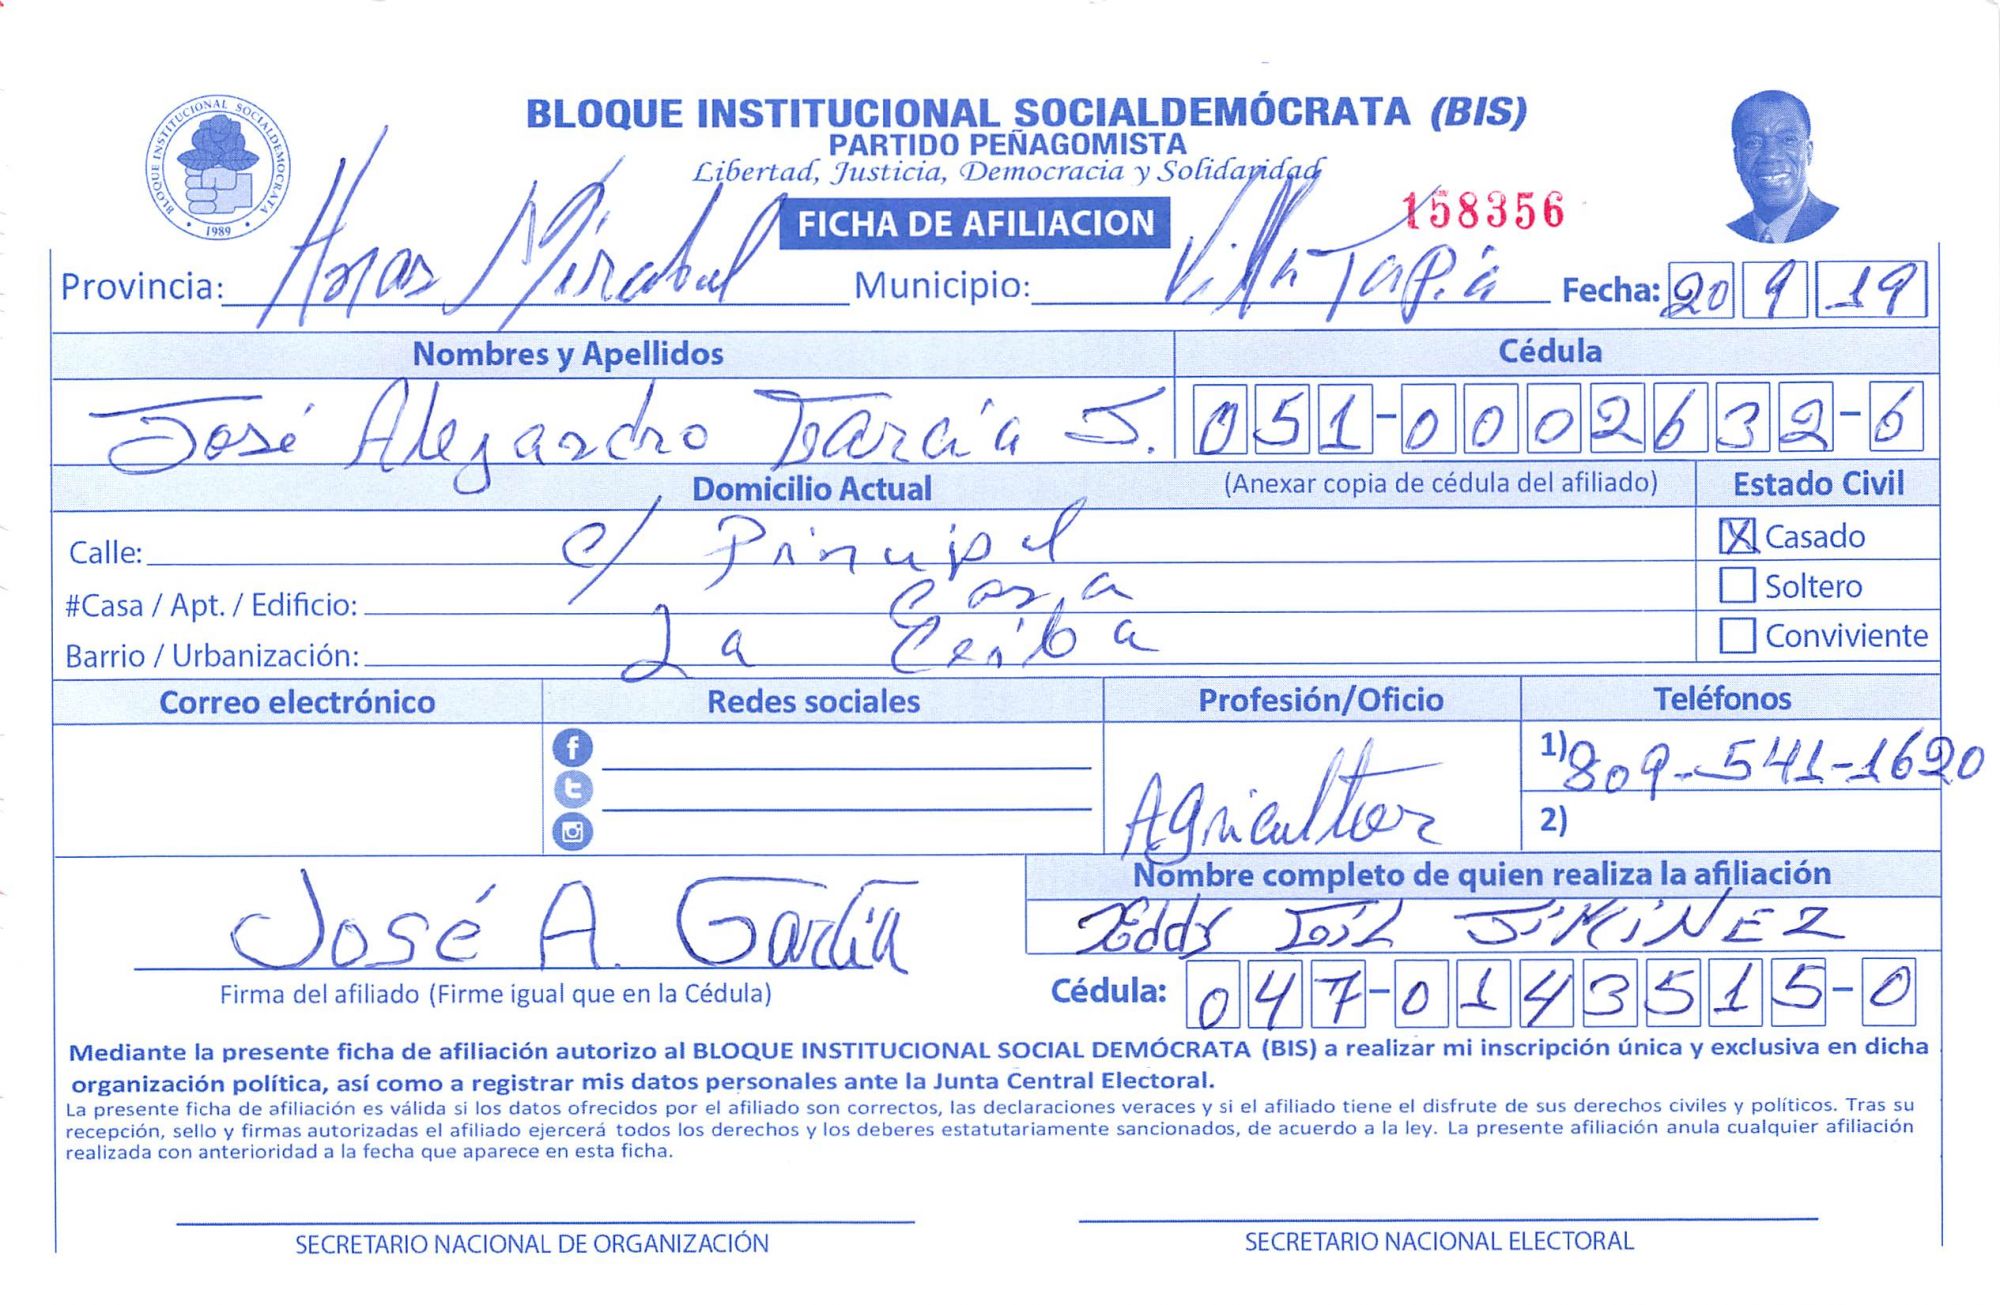 BLOQUE INSTITUCIONAL SOCIALDEMÓCRATA (BIS)
PARTIDO PEÑAGOMISTA
Libertad, Justicia, Democracia y Solidaridad
BLOQUE INSTITUCIONAL SOCIALDEMOCRATA
1989
FICHA DE AFILIACION
158356
Provincia: Hnas Mirabal Municipio: Villa Tapia Fecha: 20 9 19
Nombres y Apellidos Cédula
José Alejandro García J. 051-0002632-6
Domicilio Actual (Anexar copia de cédula del afiliado) Estado Civil
Calle: c/ Principal X Casado
#Casa / Apt. / Edificio: Casa Soltero
Barrio / Urbanización: La Ceiba Conviviente
Correo electrónico Redes sociales Profesión/Oficio Teléfonos
1) 809-541-1620
Agricultor
2)
Nombre completo de quien realiza la afiliación
José A. García Eddy JiMiNEZ
Firma del afiliado (Firme igual que en la Cédula) Cédula: 047-0143515-0
Mediante la presente ficha de afiliación autorizo al BLOQUE INSTITUCIONAL SOCIAL DEMÓCRATA (BIS) a realizar mi inscripción única y exclusiva en dicha
organización política, así como a registrar mis datos personales ante la Junta Central Electoral.
La presente ficha de afiliación es válida si los datos ofrecidos por el afiliado son correctos, las declaraciones veraces y si el afiliado tiene el disfrute de sus derechos civiles y políticos. Tras su
recepción, sello y firmas autorizadas el afiliado ejercerá todos los derechos y los deberes estatutariamente sancionados, de acuerdo a la ley. La presente afiliación anula cualquier afiliación
realizada con anterioridad a la fecha que aparece en esta ficha.
SECRETARIO NACIONAL DE ORGANIZACIÓN SECRETARIO NACIONAL ELECTORAL